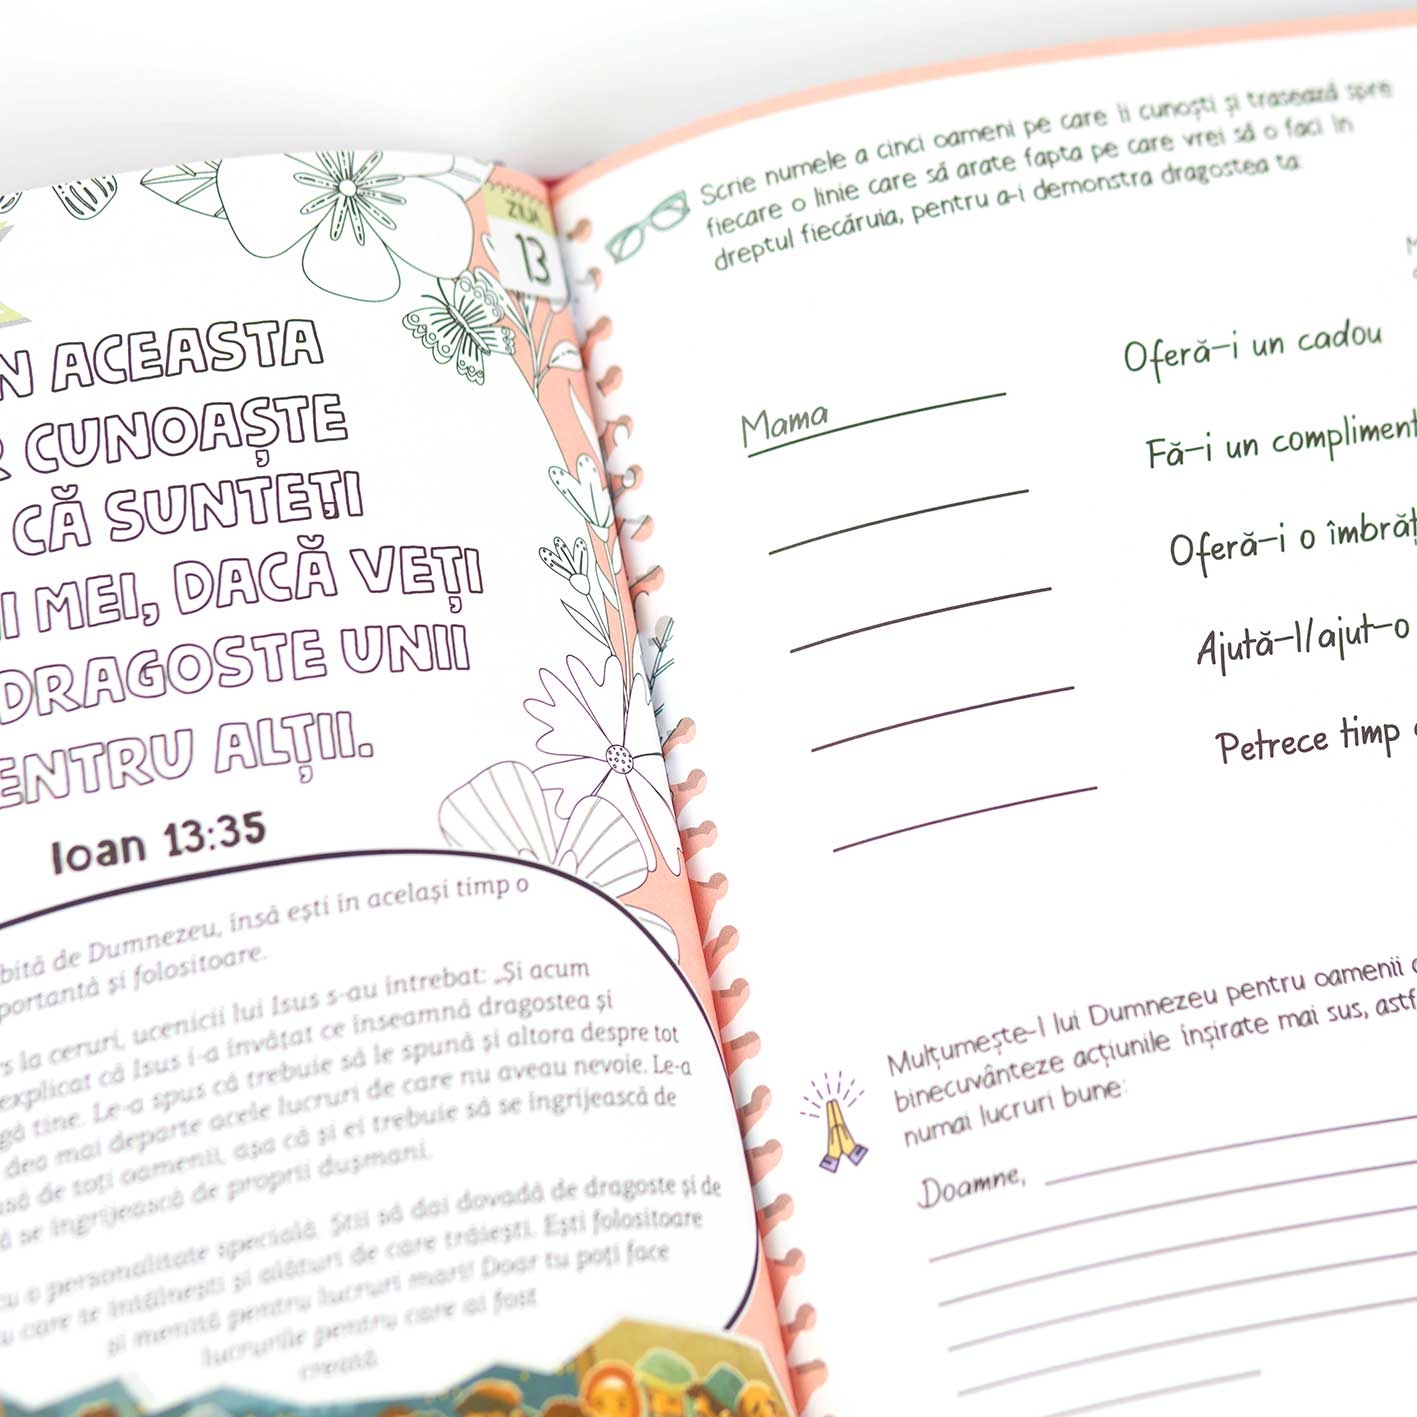 ZIUA
13
ÎN ACEASTA
CUNOAȘTE
CĂ SUNTEȚI
MEI, DACĂ VEȚI
DRAGOSTE UNII
PENTRU ALȚII.
Ioan 13:35
de Dumnezeu, însă ești în același timp o
și folositoare.
la ceruri, ucenicii lui Isus s-au întrebat: „Și acum
explicat că Isus i-a învățat ce înseamnă dragostea și
tine. Le-a spus că trebuie să le spună și altora despre tot
dea mai departe acele lucruri de care nu aveau nevoie. Le-a
de toți oamenii, așa că și ei trebuie să se îngrijească de
se îngrijească de proprii dușmani.
cu o personalitate specială. Știi să dai dovadă de dragoste și de
care te întâlnești și alături de care trăiești. Ești folositoare
și menită pentru lucruri mari! Doar tu poți face
lucrurile pentru care ai fost
creată.
Scrie numele a cinci oameni pe care îi cunoști și trasează spre
fiecare o linie care să arate fapta pe care vrei să o faci în
dreptul fiecăruia, pentru a-i demonstra dragostea ta:
Mama
Oferă-i un cadou
Fă-i un compliment
Oferă-i o îmbrăț
Ajută-l/ajut-o
Petrece timp
Mulțumește-l lui Dumnezeu pentru oamenii
binecuvânteze acțiunile înșirate mai sus, astf
numai lucruri bune:
Doamne,